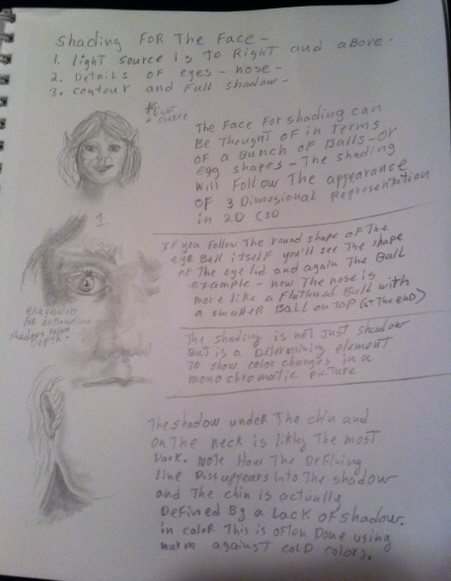 Shading For The Face -
1. light source is to Right and above.
2. Details of eyes - nose -
3. contour and Full shadow -
The Face For shading can
Be Thought OF in Terms
OF a Bunch OF Balls - or
egg shapes - The shading
will Follow The appearance
OF 3 Dimegional Representation
in 2D
1.
IF you Follow The round shape OF The
eye Ball itself you'll see The shape
of The eye lid and again The Ball
example - now The nose is
more like a Flattened Ball with
a smaller Ball on Top (at The end)
The shading is not Just shadow
But is a Determining element
To show color changes in a
mono chromatic picture
The shadow under The chin and
on The neck is likly The most
Dark. Note How The Defining
line Dissappears into The shadow
and The chin is actually
Defined By a Lack OF shadow.
in color This is often Done using
warm against cold colors.